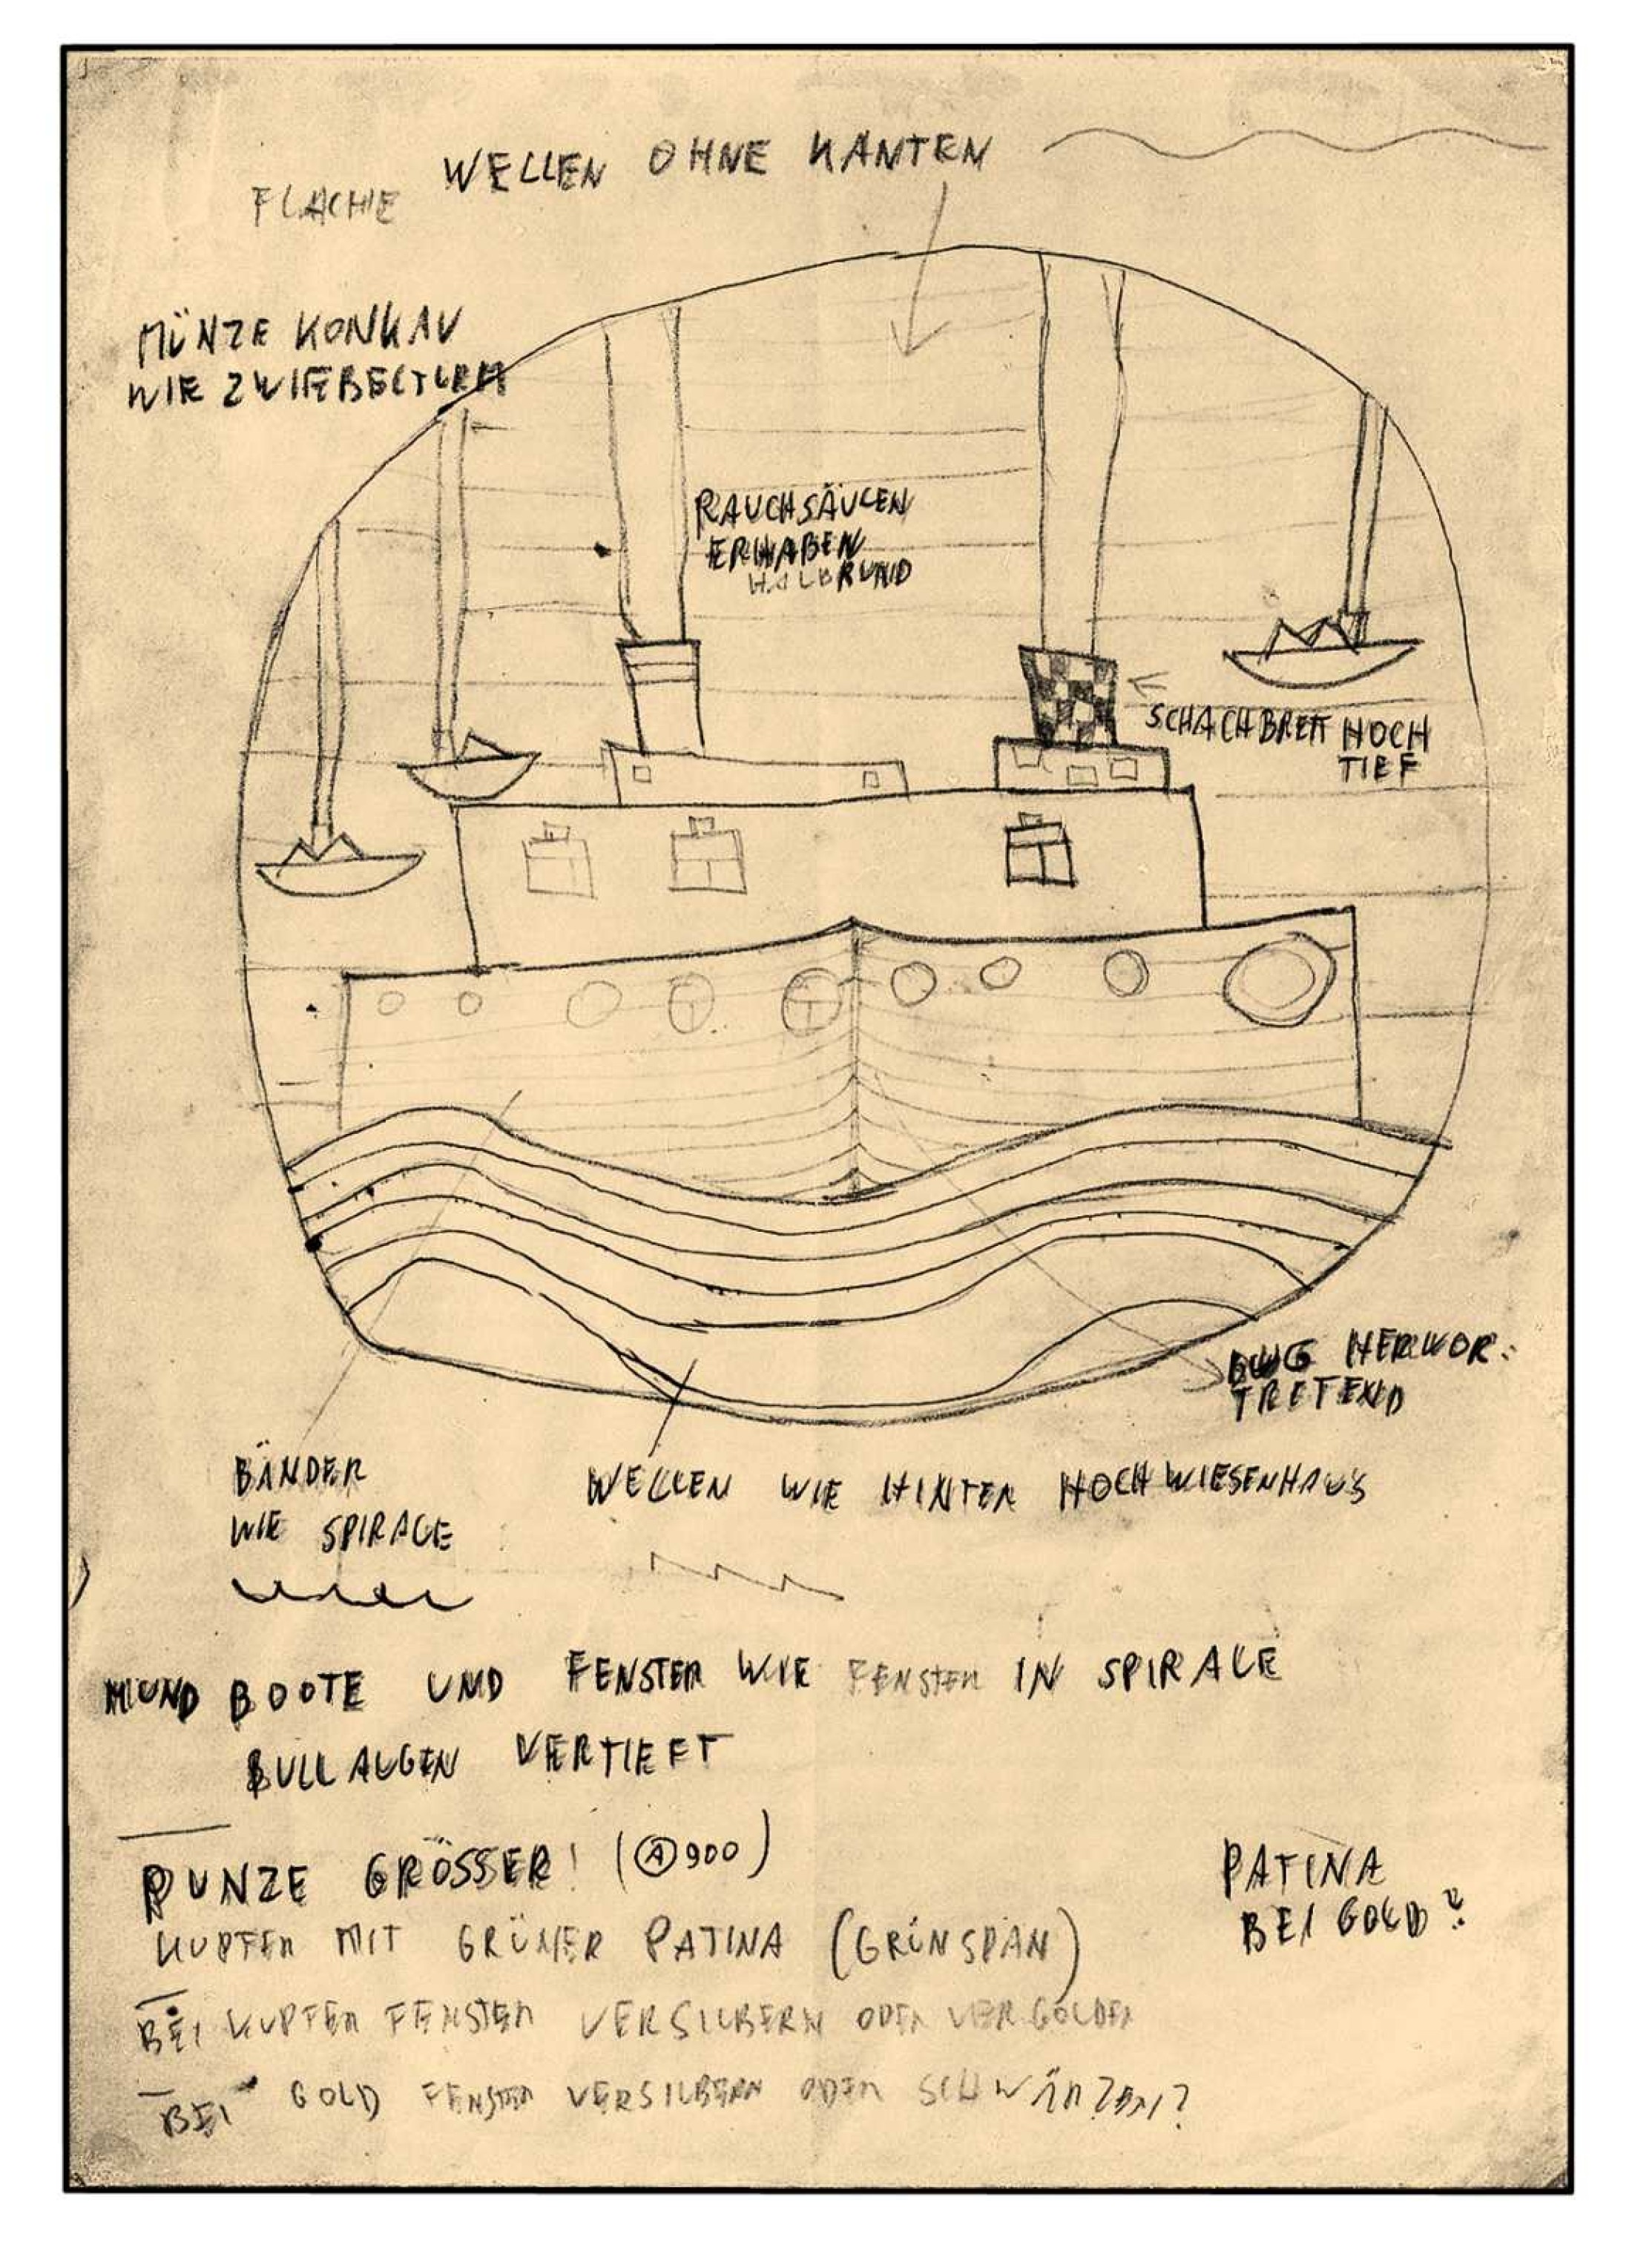 WELLEN OHNE KANTEN
FLACHE
MÜNZE KONKAV
WIE ZWIEBELTURM
RAUCHSÄULEN
ERHABEN
HALBRUND
SCHACHBRETT HOCH
TIEF
BUG HERVOR:
TRETEND
BÄNDER
WIE SPIRALE
WELLEN WIE HINTER HOCHWIESENHAUS
MUND BOOTE UND FENSTER WIE FENSTER IN SPIRALE
BULLAUGEN VERTIEFT
PUNZE GRÖSSER! (Ⓐ900)
PATINA
BEI GOLD?
KUPFER MIT GRÜNER PATINA (GRÜNSPAN)
BEI KUPFER FENSTER VERSILBERN ODER VERGOLDEN
BEI GOLD FENSTER VERSILBERN ODER SCHWÄRZEN?